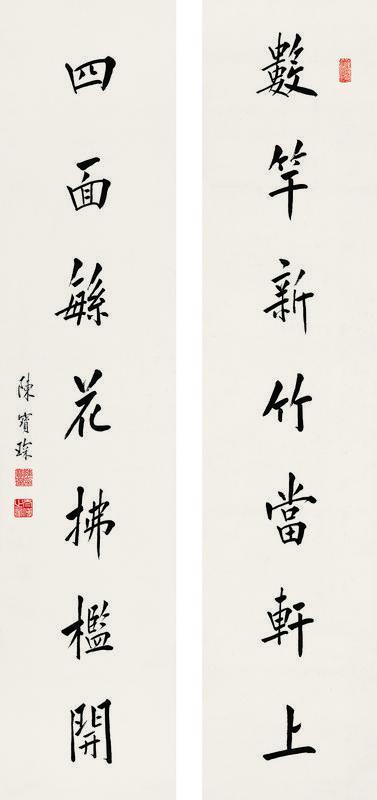 數竿新竹當軒上
四面緐花拂檻開
陳寶琛